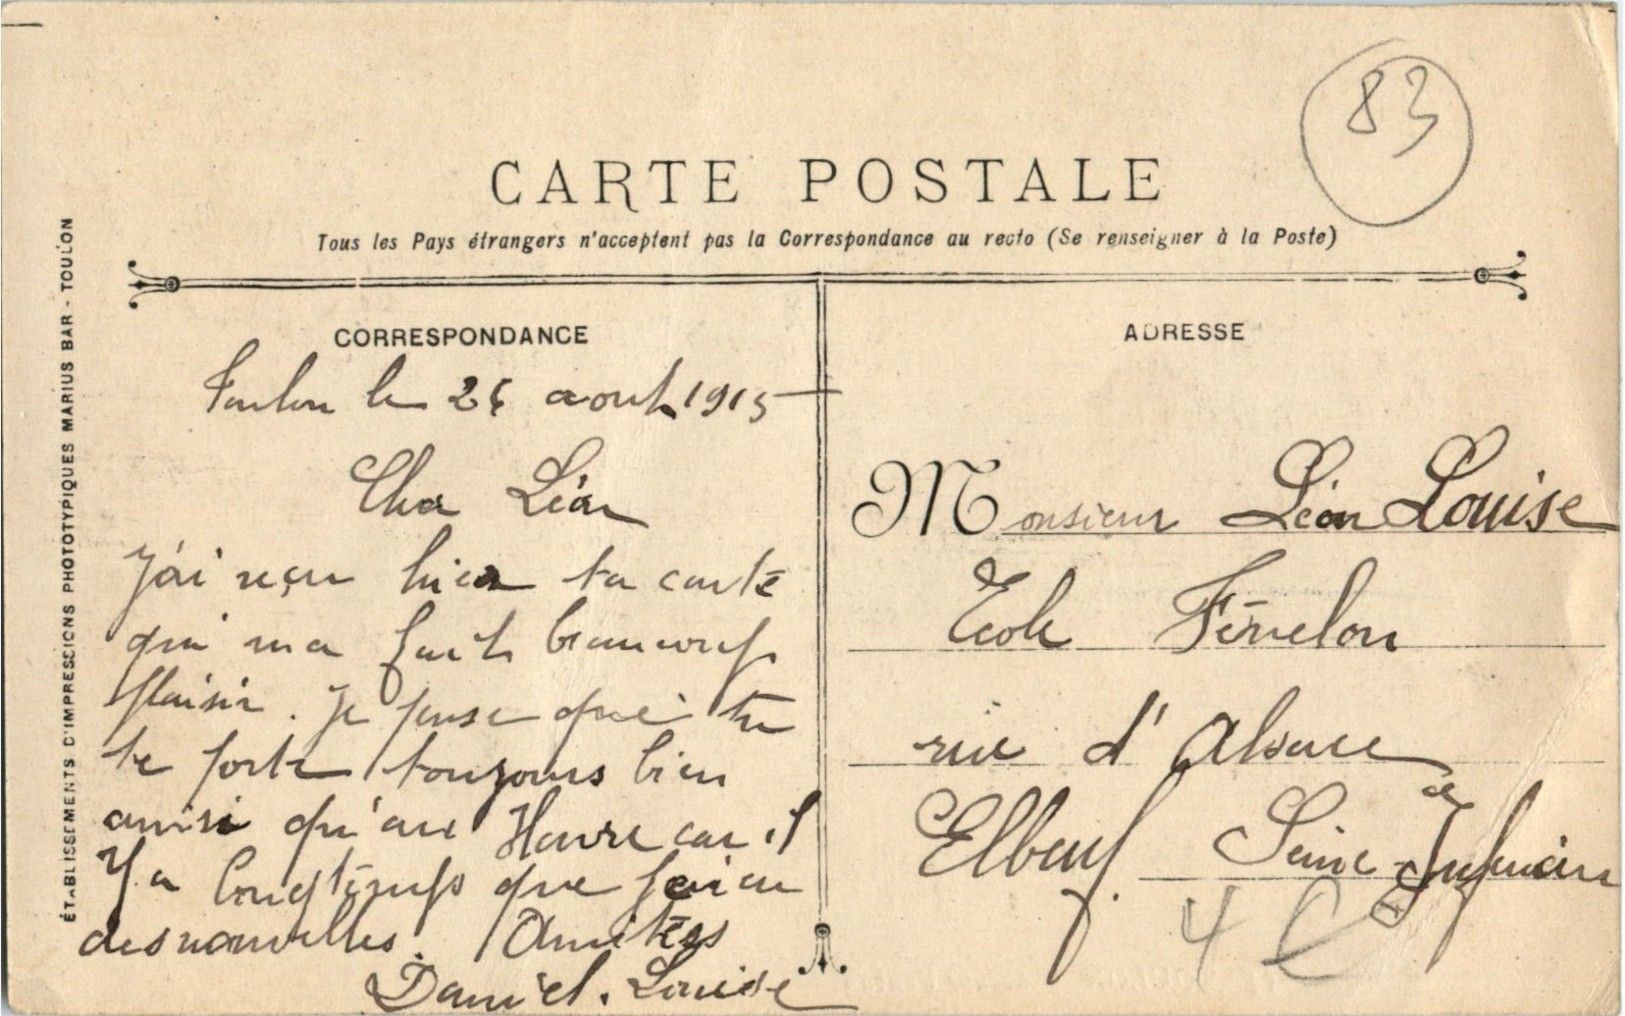 83
CARTE POSTALE
Tous les Pays étrangers n'acceptent pas la Correspondance au recto (Se renseigner à la Poste)
ÉTABLISSEMENTS D'IMPRESSIONS PHOTOTYPIQUES MARIUS BAR - TOULON
CORRESPONDANCE
Toulon le août 1915
Cher Léon
J'ai reçu hier ta carte
qui ma fait beaucoup
plaisir. Je pense que tu
te porte toujours bien
ainsi qu'au Havre car il
Y a longtemps que j'ai eu
des nouvelles. Amitiés
Daniel. Louise
ADRESSE
Monsieur Léon Louise
Ecole Fénelon
rue d'Alsace
Elbeuf. Seine Inférieure
4